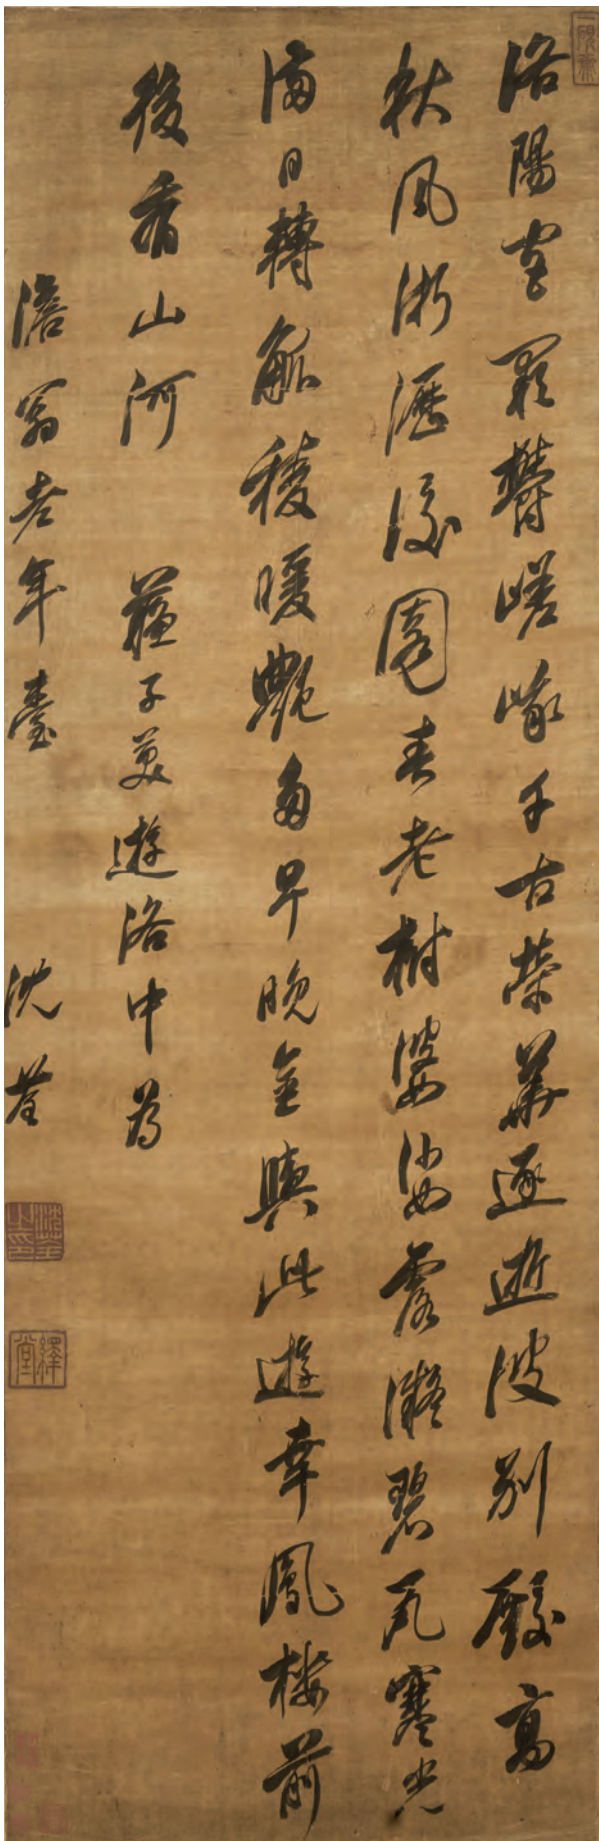 一硯齋
洛陽宮闕鬱嵯峨千古榮華逐逝波別殿高
秋風淅瀝後園春老樹婆娑露凝碧瓦寒光
滿日轉觚稜暖艷多早晚金輿此遊幸鳳樓前
後看山河 蘇子美遊洛中為
澹翁老年臺 沈荃
沈荃之印
繹堂